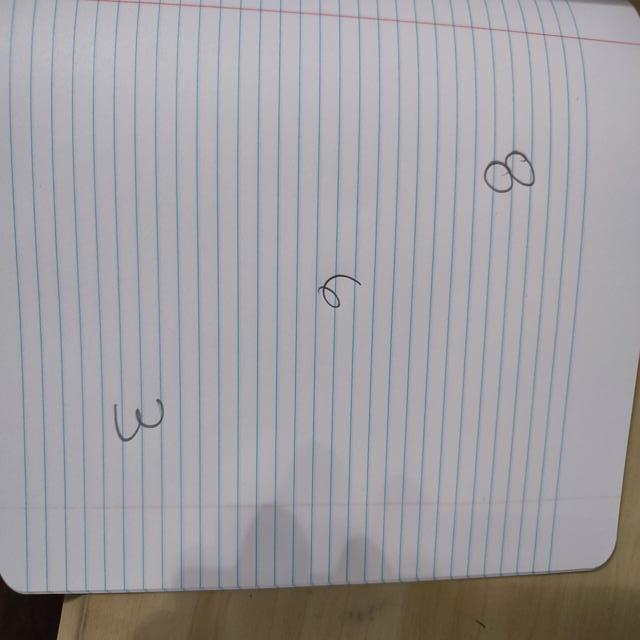 8
6
3